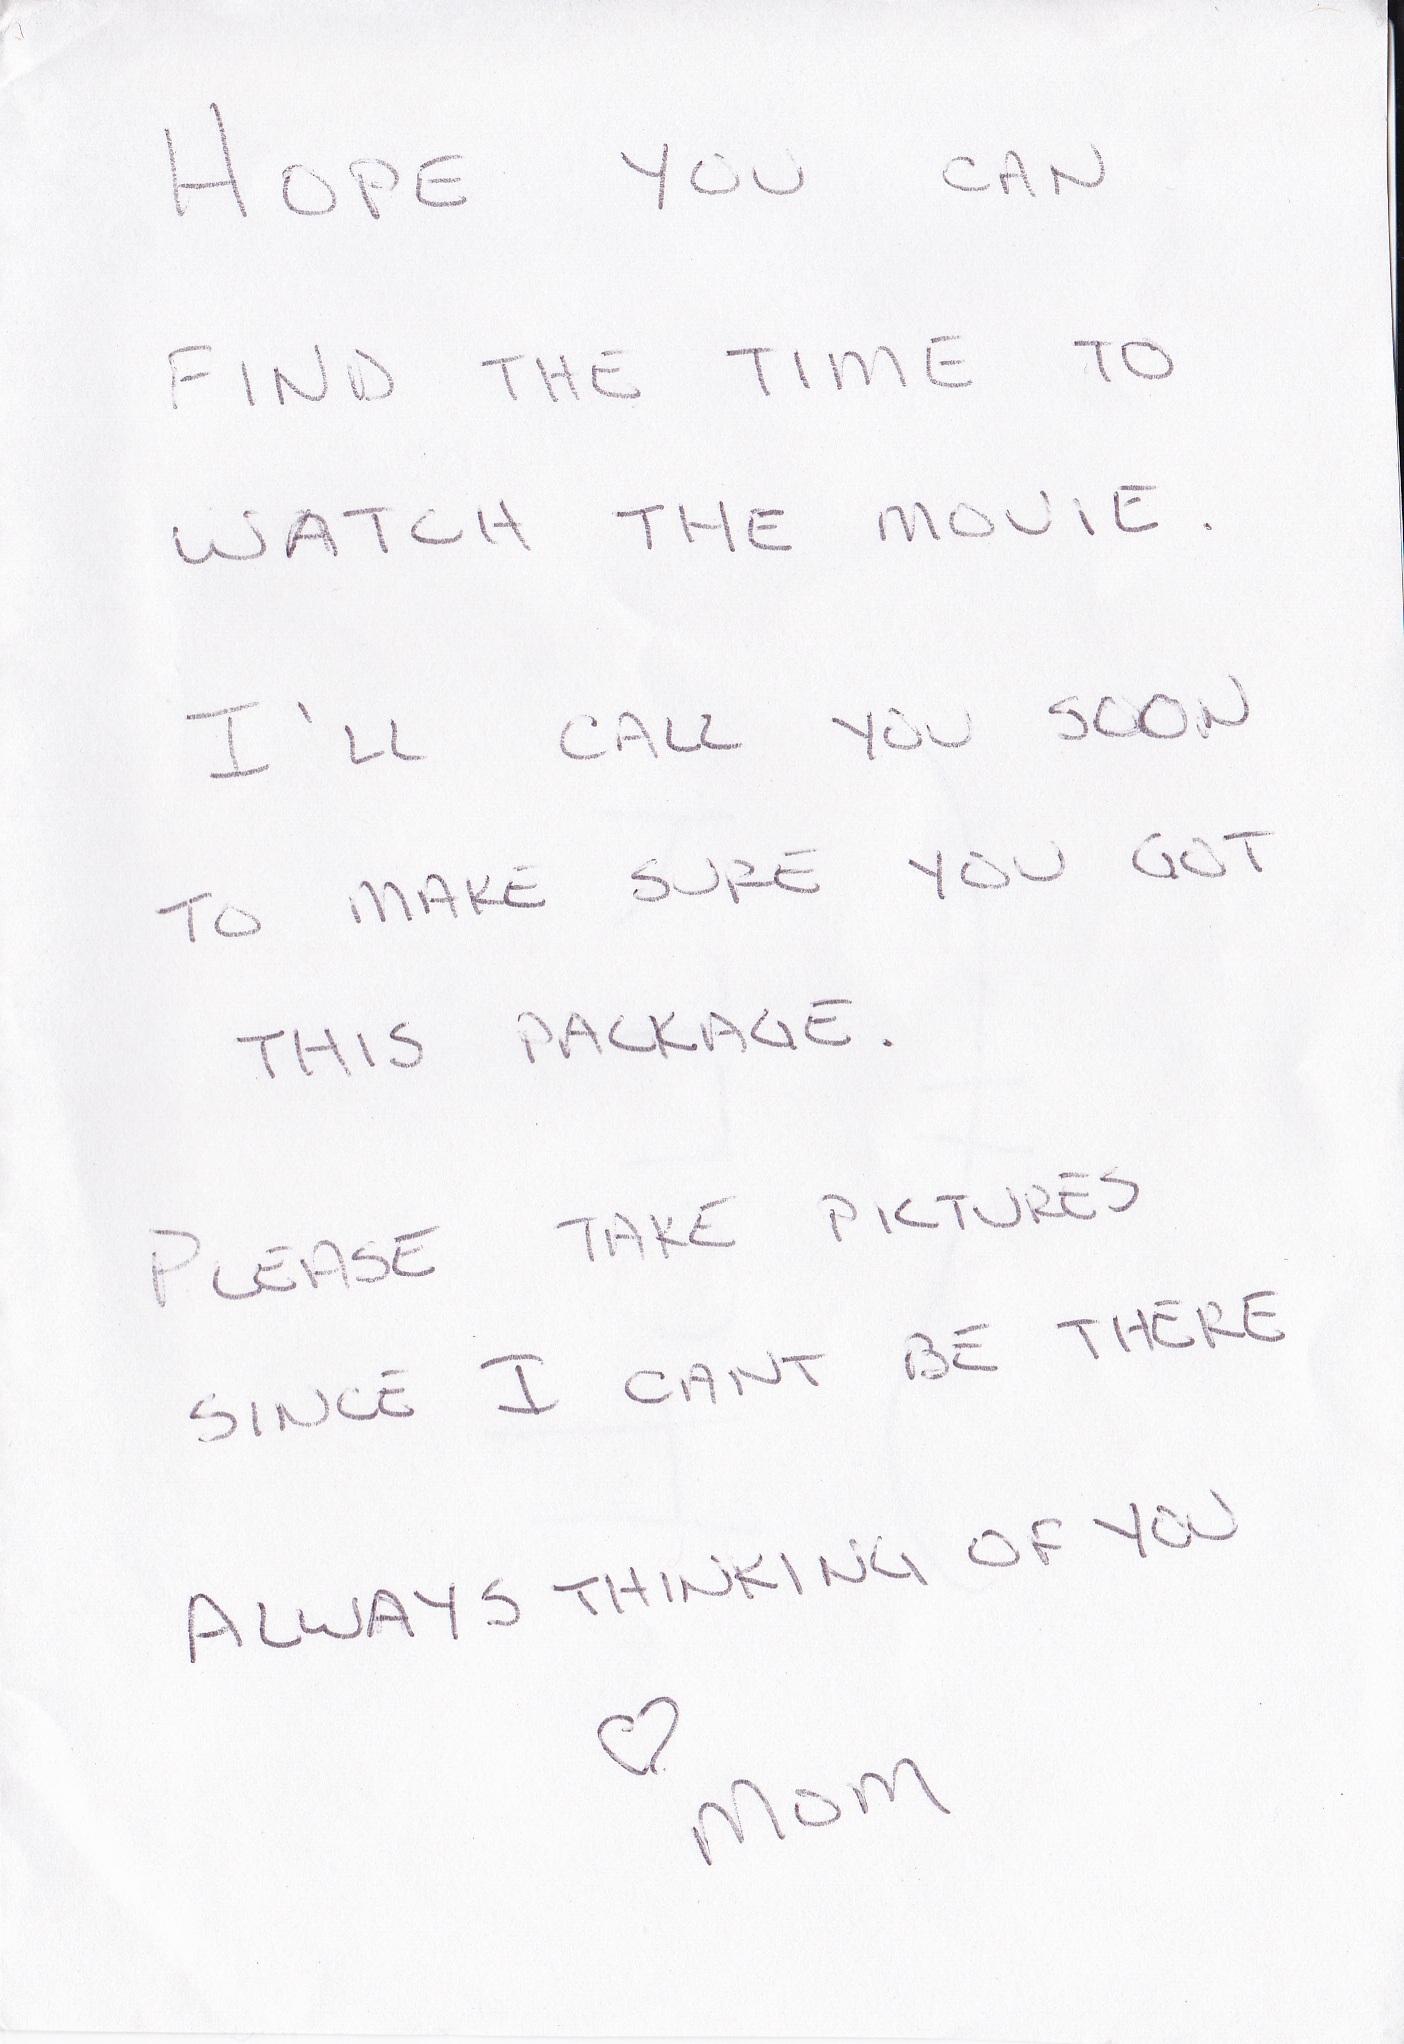 HOPE YOU CAN
FIND THE TIME TO
WATCH THE MOVIE.
I'LL CALL YOU SOON
TO MAKE SURE YOU GOT
THIS PACKAGE.
PLEASE TAKE PICTURES
SINCE I CANT BE THERE
ALWAYS THINKING OF YOU
♡
MOM